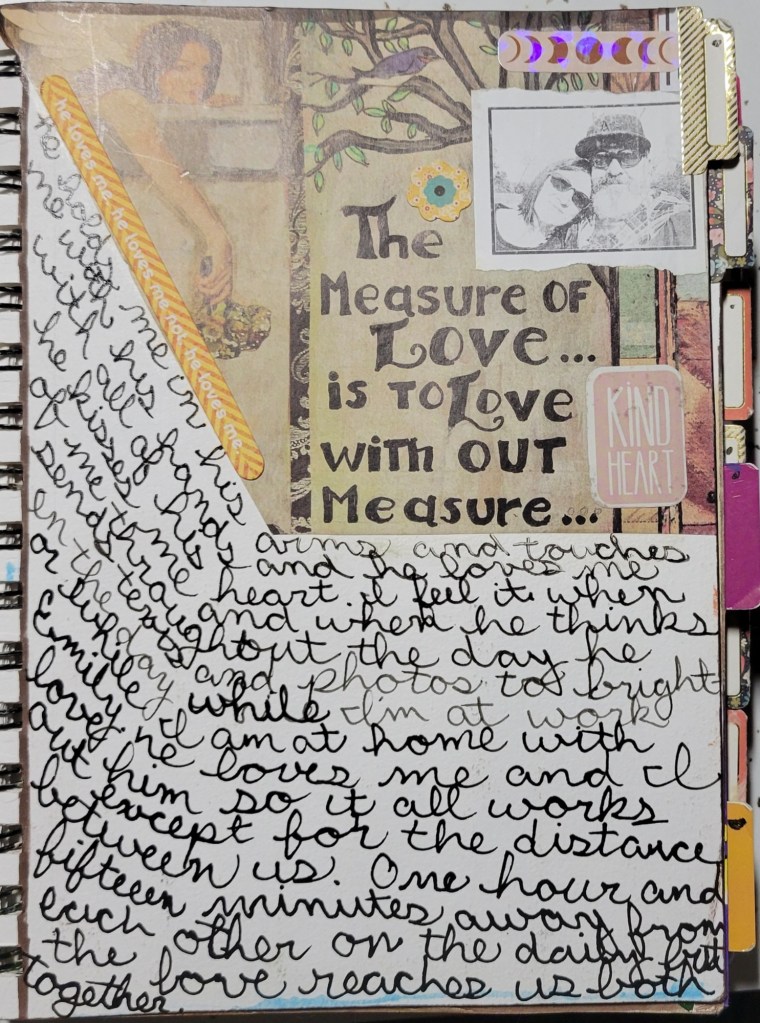 he loves me, he loves me not, he loves me
The
Measure of
Love...
is to Love
with out
Measure...
KIND
HEART
he holds me in his arms and touches
me with his hands and he loves me
with all of his heart. I feel it when
he kisses me and when he thinks
of me throughout the day he
sends me texts and photos to bright
en the day while I'm at work
or while I am at home with
Emilley. he loves me and I
love him so it all works
out except for the distance
between us. One hour and
fifteen minutes away from
each other on the daily but
the love reaches us both
together.